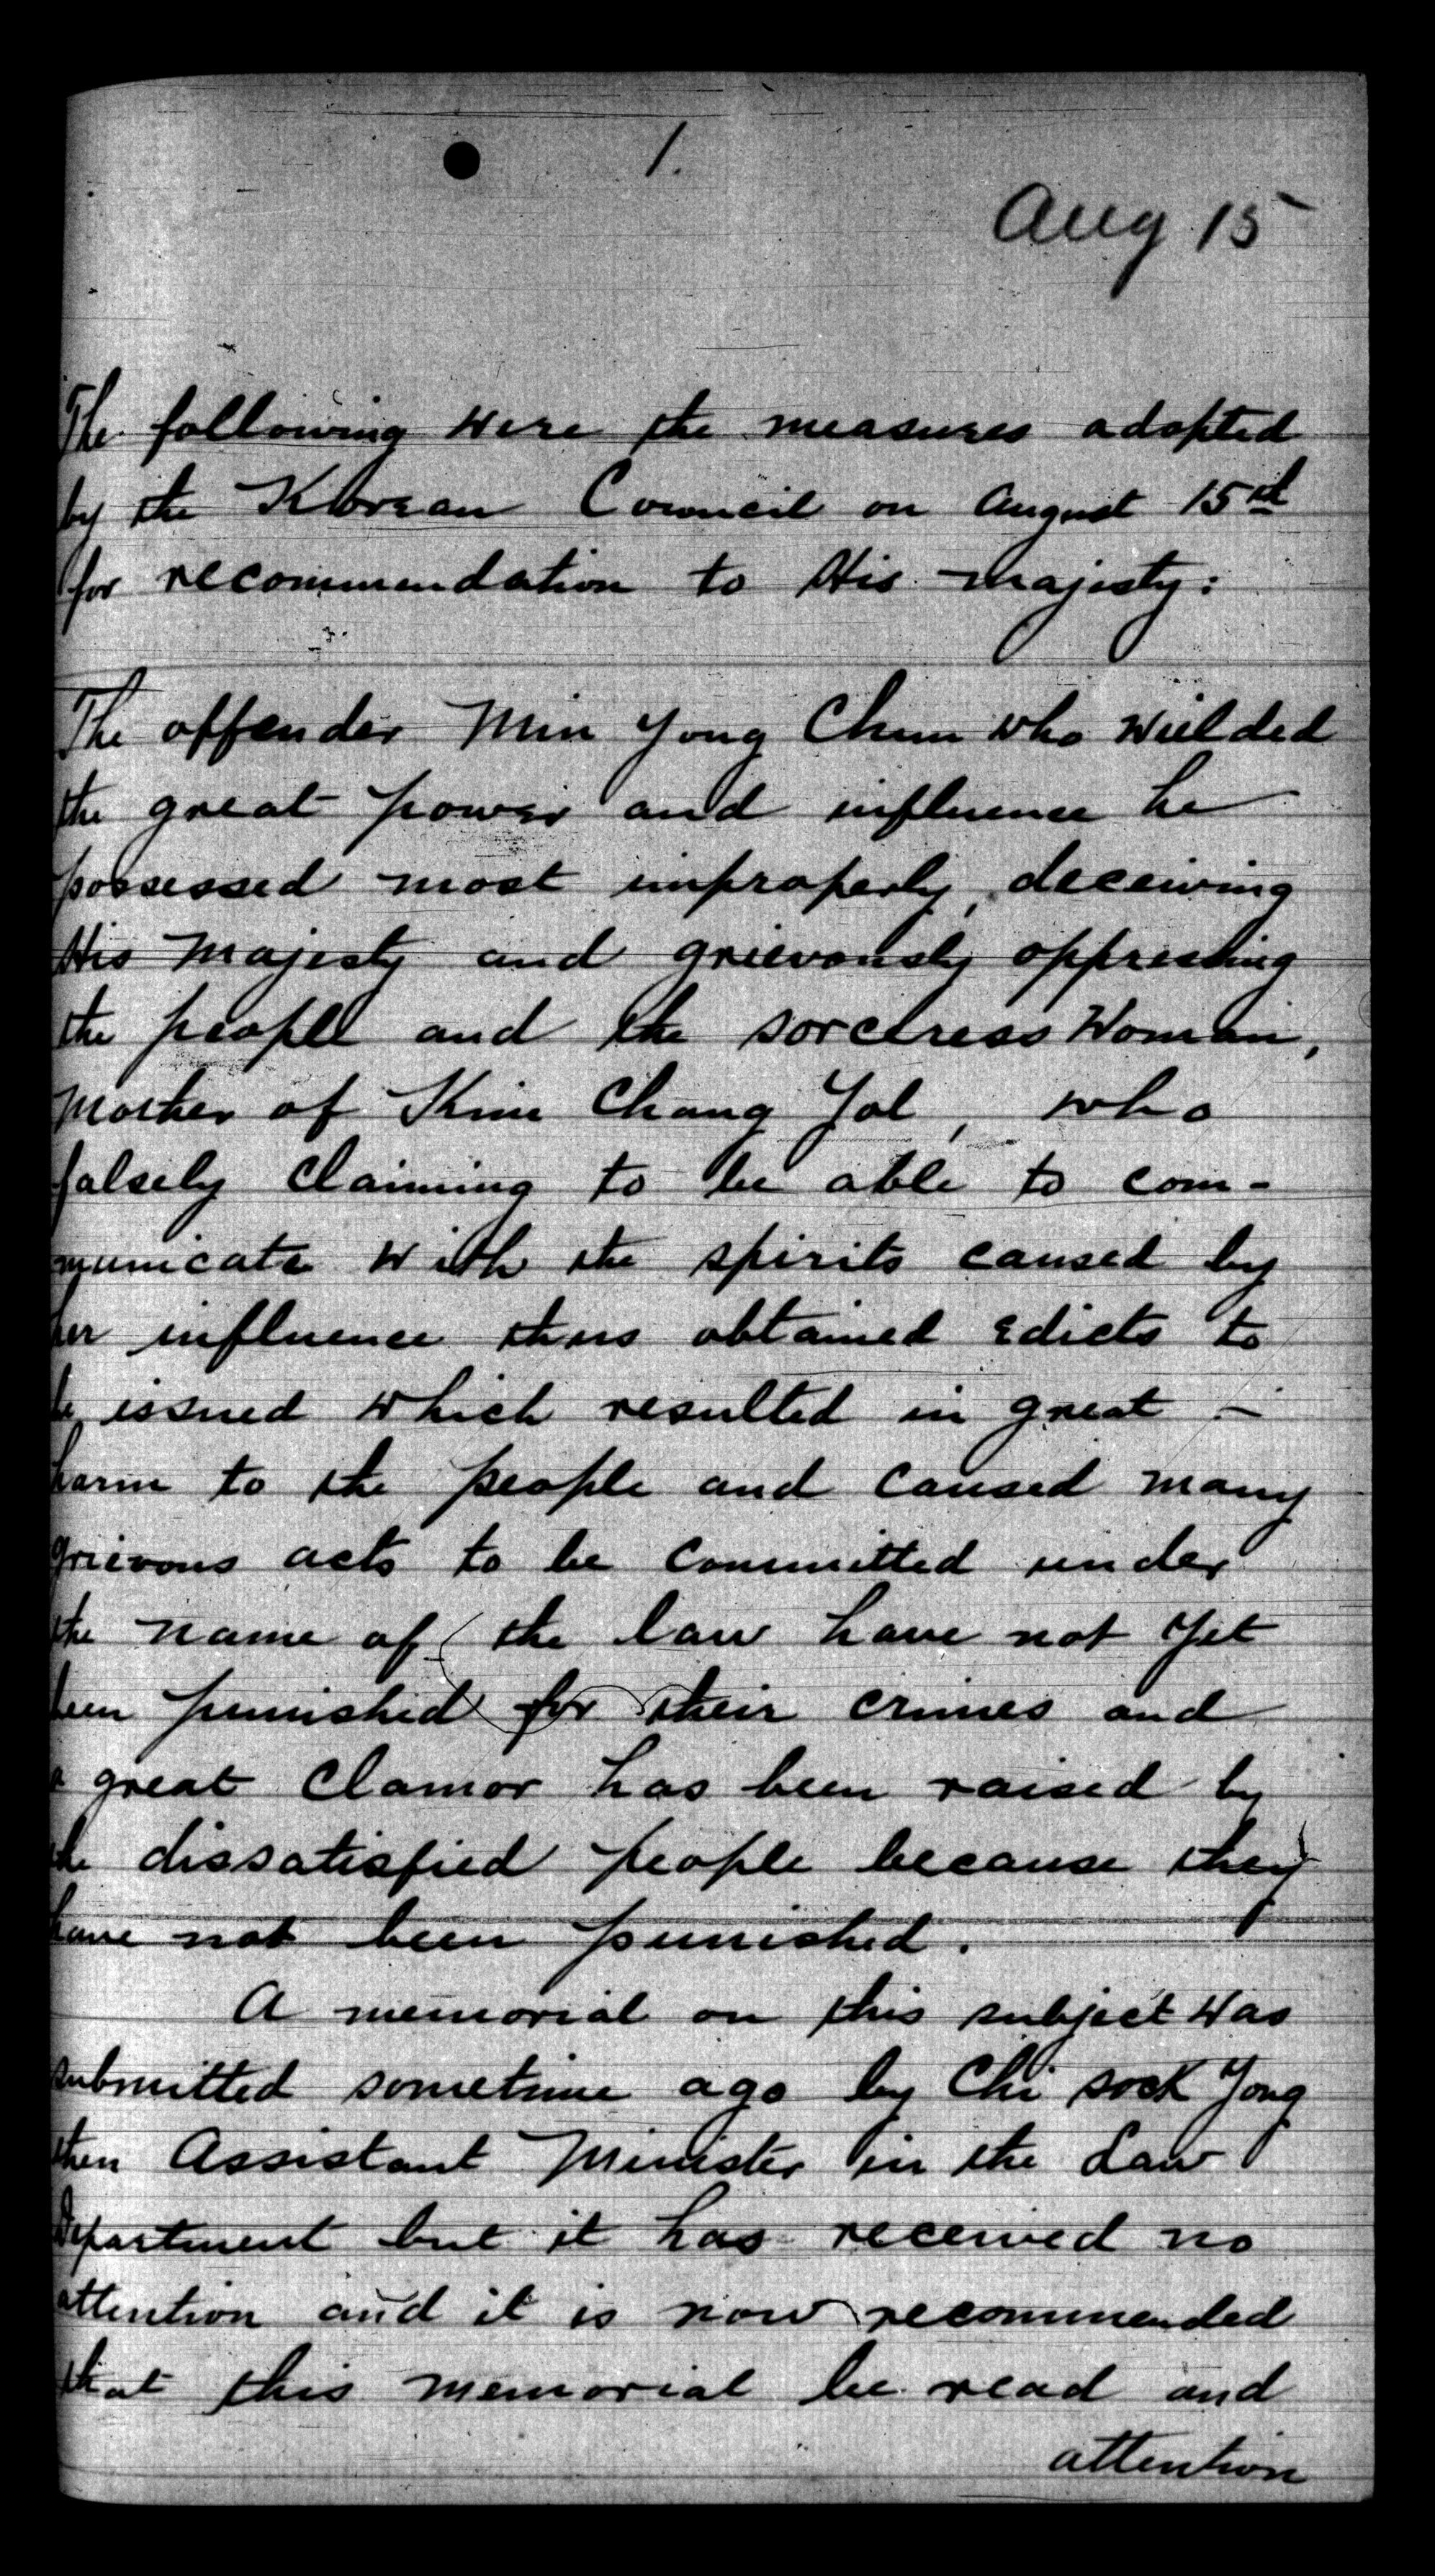 1.
Aug 15
The following were the measures adopted
by the Korean Council on August 15th
for recommendation to His Majesty:
The offender Min Yong Chun who wielded
the great power and influence he
possessed most improperly, deceiving
His Majesty and grievously oppressing
the people and the sorceress woman,
mother of Kim Chang Yol, who
falsely claiming to be able to com-
municate with the spirits caused by
her influence thus obtained edicts to
be issued which resulted in great -
harm to the people and caused many
grievous acts to be committed under
the name of the law have not yet
been punished for their crimes and
a great clamor has been raised by
the dissatisfied people because they
have not been punished.
A memorial on this subject was
submitted sometime ago by Chi Sock Yong
then Assistant Minister in the Law
Department but it has received no
attention and it is now recommended
that this memorial be read and
attention